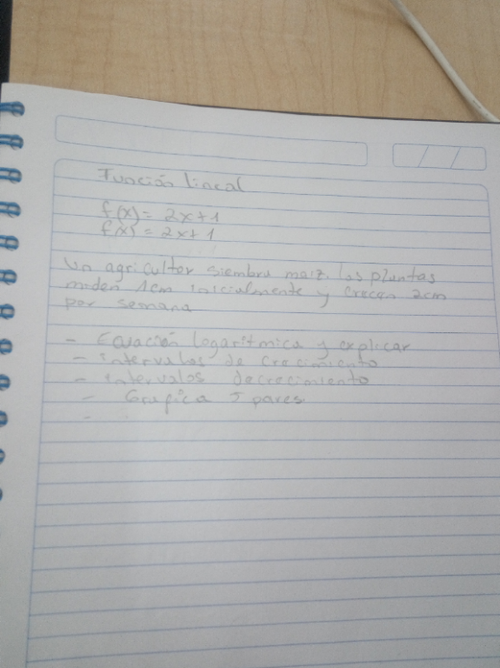 Función lineal
f(x) = 2x+1
f(x) = 2x+1
Un agricultor siembra maiz. las plantas
miden 1cm inicialmente y crecen 2cm
por semana
- Ecuación logarítmica y explicar
- intervalos de crecimiento
- intervalos decrecimiento
- Grafica 5 pares
-